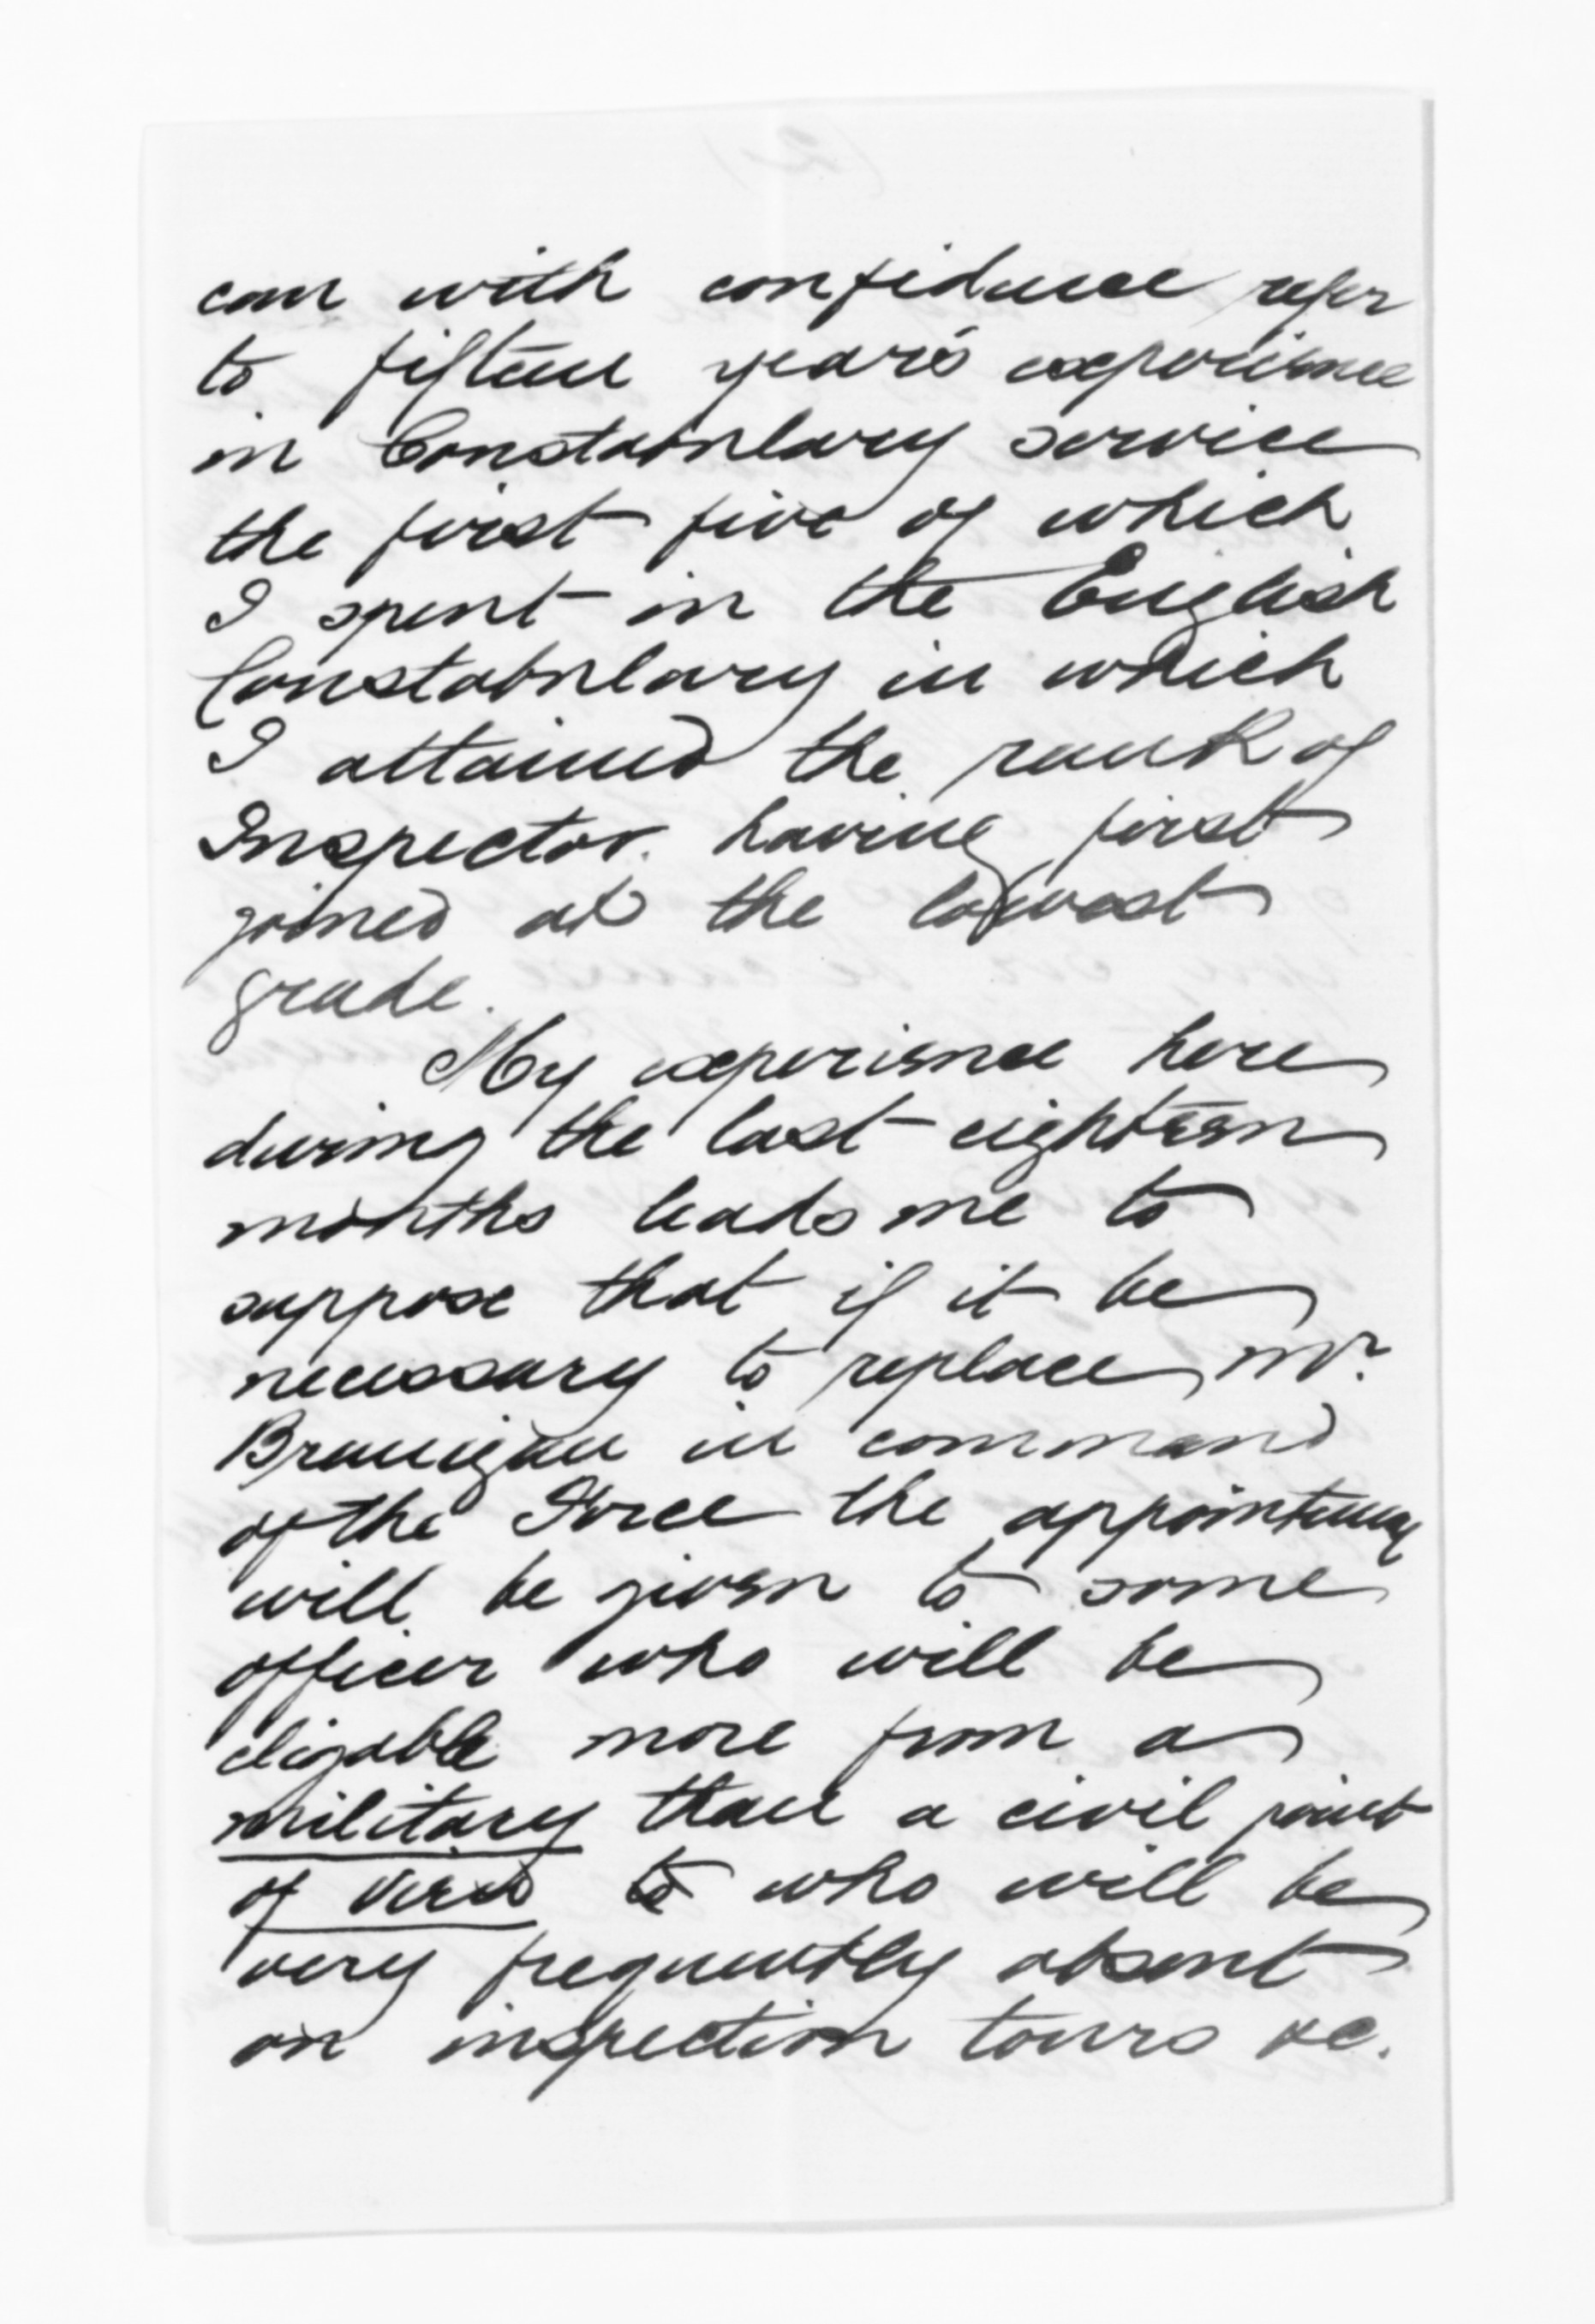 can with confidence refer
to fifteen year's experience
in Constabulary service
the first five of which
I spent in the English
Constabulary in which
I attained the rank of
Inspector. having first
joined at the lowest
grade.
My experience here
during the last eighteen
months leads me to
suppose that if it be
necessary to replace Mr.
Brannigan in command
of the Force the appointment
will be given to some
officer who will be
eligable more from a
military than a civil point
of view & who will be
very frequently absent
on inspection tours &c.